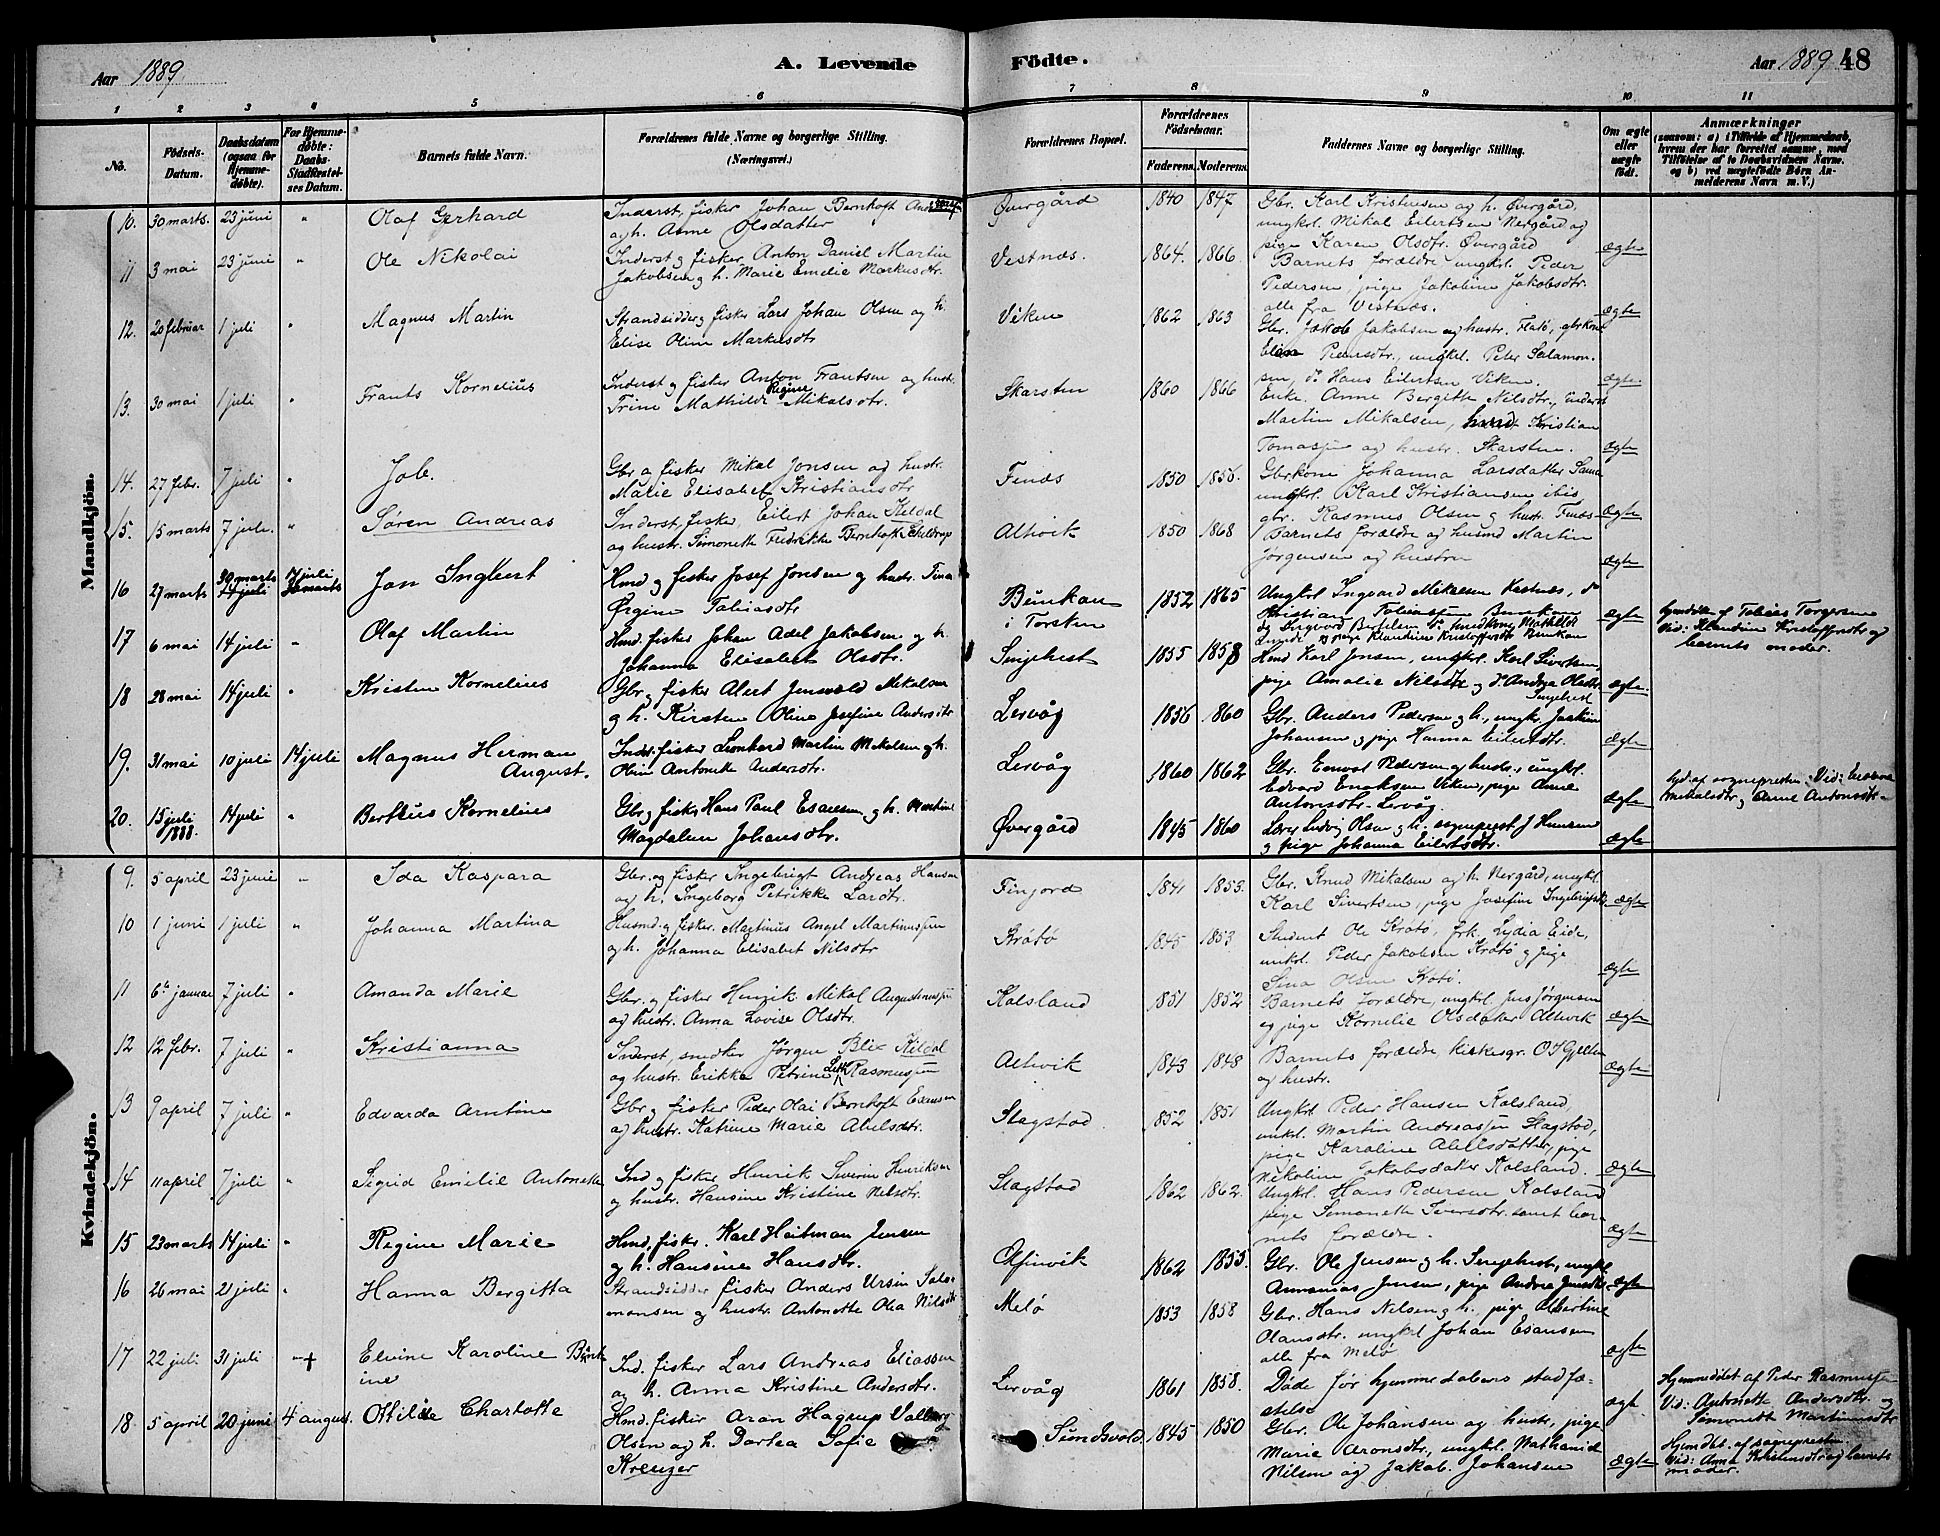 Aar 1889
A. Levende Födte.
Aar 1889 48
1 2 3 4 5 6 7 8 9 10 11
No.
Födsels-Datum.
Daabsdatum (ogsaa for Hjemme-döbte).
For Hjemme-döbte: Daabs-Stadfæstel-ses Datum.
Barnets fulde Navn.
Forældrenes fulde Navne og borgerlige Stilling. (Næringsvei.)
Forældrenes Bopæl.
Forældrenes Födselsaar.
Faderens. Moderens.
Faddernes Navne og borgerlige Stilling.
Om ægte eller uægte födt.
Anmærkninger
(saasom: a) i Tilfælde af Hjemmedaab, hvem der har forrettet samme, med Tilföielse af to Daabsvidners Navne, og b) ved uægtefödte Börn An-melderens Navn m. V.)
Mandkjön.
10. 30 marts. 23 juni " Olaf Gerhard
Inderst, fisker Johan Bernhoft
og h. Anne Olsdatter
Øvergård 1840 1847
Gbr. Karl Kristensen og h. Øvergård,
ungkrl. Mikal Eilertsen Nergård og
pige Karen Olsdtr. Øvergård ægte
11 3 mai 23 juni " Ole Nikolai
Inderst og fisker Anton Daniel Martin
Jakobsen og h. Marie Emelie Markusdtr.
Vestnæs. 1864. 1866
Barnets forældre, ungkrl. Peder
Pedersen, pige Jakobine Jakobsdtr.
alle fra Vestnæs. ægte
12. 20 februar 1 juli " Magnus Martin
Strandsidder og fisker Lars Johan Olsen og h.
Elise Oline Markusdtr
Viken 1862 1863
Gbr. Jakob Jakobsen og hustr. Flatö, gbrkone
Pedersdtr., ungkrl. Peter Salamon-
sen, do Hans Eilertsen Viken. ægte.
13. 30 mai 1 juli " Frants Kornelius
Inderst og fisker Anton Frantsen og hustr.
Trine Mathilde Regine Mikalsdtr.
Skarsten 1860 1866
Enke Anne Bergitte Nilsdtr., inderst
Martin Mikalsen, Kristian
Tomassen og hustr. Skarsten. ægte
14. 27 febr. 7 juli " Job.
Gbr og fisker Mikal Jonsen og hustr.
Marie Elisabet Kristiansdtr
Finæs 1850 1856.
Gbrkone Johanna Larsdatter Sama
ungkrl. Karl Kristiansen ibid.
gbr. Rasmus Olsen og hustr. Finæs ægte
15. 15 marts 7 juli. " Søren Andreas
Inderst, fisker, Eilert Johan Kildal
og hustr. Simonette Fredrikke Bernhoft Scheldrup
Altvik 1850 1868
Barnets forældre og husmd Martin
Jørgensen og hustru ægte
16 27 marts 30 marts 14 juli 7 juli Jon Ingbert
Hmd og fisker Josef Jonsen og hustr. Tina
Ørgine Tobiasdtr
Bunkan i Torsken 1852 1865
Ungkrl Ingvard Mikalsen Kestnæs, do
Kristian Tobiassen Bunkan
ægte
Hjemdøbt af Tobias Torgersen
Vid: Klaudine Kristoffersdtr og
barnets moder.
17 6 mai 14 juli " Olaf Martin
Hmd. fisker Johan Adel Jakobsen og h.
Johanna Elisabet Olsdtr.
Singehest 1855 1858
Hmd Karl Jonsen, ungkrl. Karl Sivertsen,
pige Amalie Nilsdtr og do Andrea Olsdtr.
Singehest ægte.
18 28 mai 14 juli " Kristen Kornelius
Gbr og fisker Alert Jenvold Mikalsen
og h. Kirsten Oline Josefine Andersdtr
Lervåg 1856 1860
Gbr. Anders Pedersen og h., ungkr. Joakim
Johansen og pige Hanna Eilertsdtr. ægte
19. 31 mai 10 juli 14 juli Magnus Herman August.
Inder. fisker Leonhard Martin Mikalsen og h.
Oline Antonette Andersdtr.
Lervåg 1860 1862
Gbr. Enevol Pedersen og hustr., ungkrl.
Edvard Enoksen Viken, pige Anne
Antonsdtr. Lervåg. ægte
Hjd. af sognepresten. Vid:
Mikalsdtr og Anne Antonsdtr.
20. 15 juli 1888. 14 juli " Berteus Kornelius
Gbr og fisker Hans Paul Esaiesen og h. Martine
Magdalena Johansdtr.
Øvergård 1845 1860
Lærer Ludvig Olsen og h. sogneprest J Hansen
og pige Johanna Eilertsdtr. ægte
Kvindekjön.
9. 5 april 23 juni " Ida Kaspara
Gbr. og fisker Ingebrigt Andreas Hansen
og h. Ingeborg Petrikke Larsdtr.
Finjord 1841 1853.
Gbr. Knud Mikalsen og h. Nergård, ungkl
Karl Sivertsen, pige Josefine Ingebrigtsdtr. ægte
10 1 juni 1 juli " Johanna Martina
Husmd. og fisker. Martinus Angel Martinussen
og h. Johanna Elisabet Nilsdtr
Kråtø 1845 1853
Student Ole Kråtø, frk. Lydia Eide,
unkrl. Peder Jakobsen Kråtø og pige
Sina Olsen Kråtø. ægte
11 6te januar 7 juli " Amanda Marie
Gbr. og fisker Henrik Mikal Augustinussen
og hustr. Anna Lovise Olsdtr.
Kalsland 1851 1852
Barnets forældre, ungkrl. Jens Jørgensen
og pige Kornelie Olsdatter Altevik ægte
12 12 febr. 7 juli " Kristianna
Inderst, snedker Jørgen Blix Kildal
og hustr. Erikka Petrine Rasmussen
Altevik 1843 1848
Barnets forældre, kirkesgr. O I Gjellan
og hustr. ægte
13 9 april 7 juli " Edvarda Arntine
Gbr. og fisker Peder Olai Bernhoft Esaisen
og hustr. Katrine Marie Abelsdtr.
Slagstad 1852 1851
Ungkrl Peder Hansen Kalsland
unkrl. Martin Andreassen Slagstad,
pige Karoline Abelsdatter, pige
Nikoline Jakobsdatter Kalsland. ægte
14 11 april 7 juli " Sigrid Emilie Antonette
Ind og fisker Henrik Severin Henriksen
og hustr. Hansine Kristine Nilsdtr.
Slagstad 1862 1862.
Ungkrl. Hans Pedersen Kalsland
pige Simonette Sversdtr. samt bar-
nets forældre. ægte
15 23 marts 14 juli " Regine Marie
Hmd. fisker. Karl Heitman Jensen
og h. Hansine Hansdtr.
Olfinvik 1862 1855.
Gbr. Ole Jensen og h. Singehest, ungkl
Annanias Jensen, pige Andrea Jensdtr ægte
16 26 mai 21 juli " Hanna Bergitta
Strandsidder fisker Anders Ursin Salo-
monsen og hustr. Antonette Olea Nilsdtr
Melø 1853 1858
Gbr. Hans Nilsen og h. pige Albertine
Olausdtr. ungkrl Johan Esaisen
alle fra Melø ægte
17 22 juli 31 juli " + Elvine Karoline Bernt
ine
Ind. fisker Lars Andreas Eliassen
og h. Anna Kristine Andersdtr.
Lervåg 1861 1858.
Døde før hjemmedabens stadfæ-
stelse ægt
Hjemmedöbt af Peder Rasmussen
Vid: Antonette Andersdtr. og
Simonette Martinusdtr
18. 5 april 20 juni 4 august. Ottilde Charlotte
Hmd. fisker Aron Hagrup Valberg
Olsen og h. Dortea Sofie
Kreuzer
Sundsvold 1845 1850
Gbr. Ole Johansen og hustr, pige
Marie Aronsdtr., ungkrl. Nathaniel
Nilsen og Jakob Johansen ægte
Hjemdöbt. af sognepresten.
Vid: Anna Kristensdtr og barnets
moder.